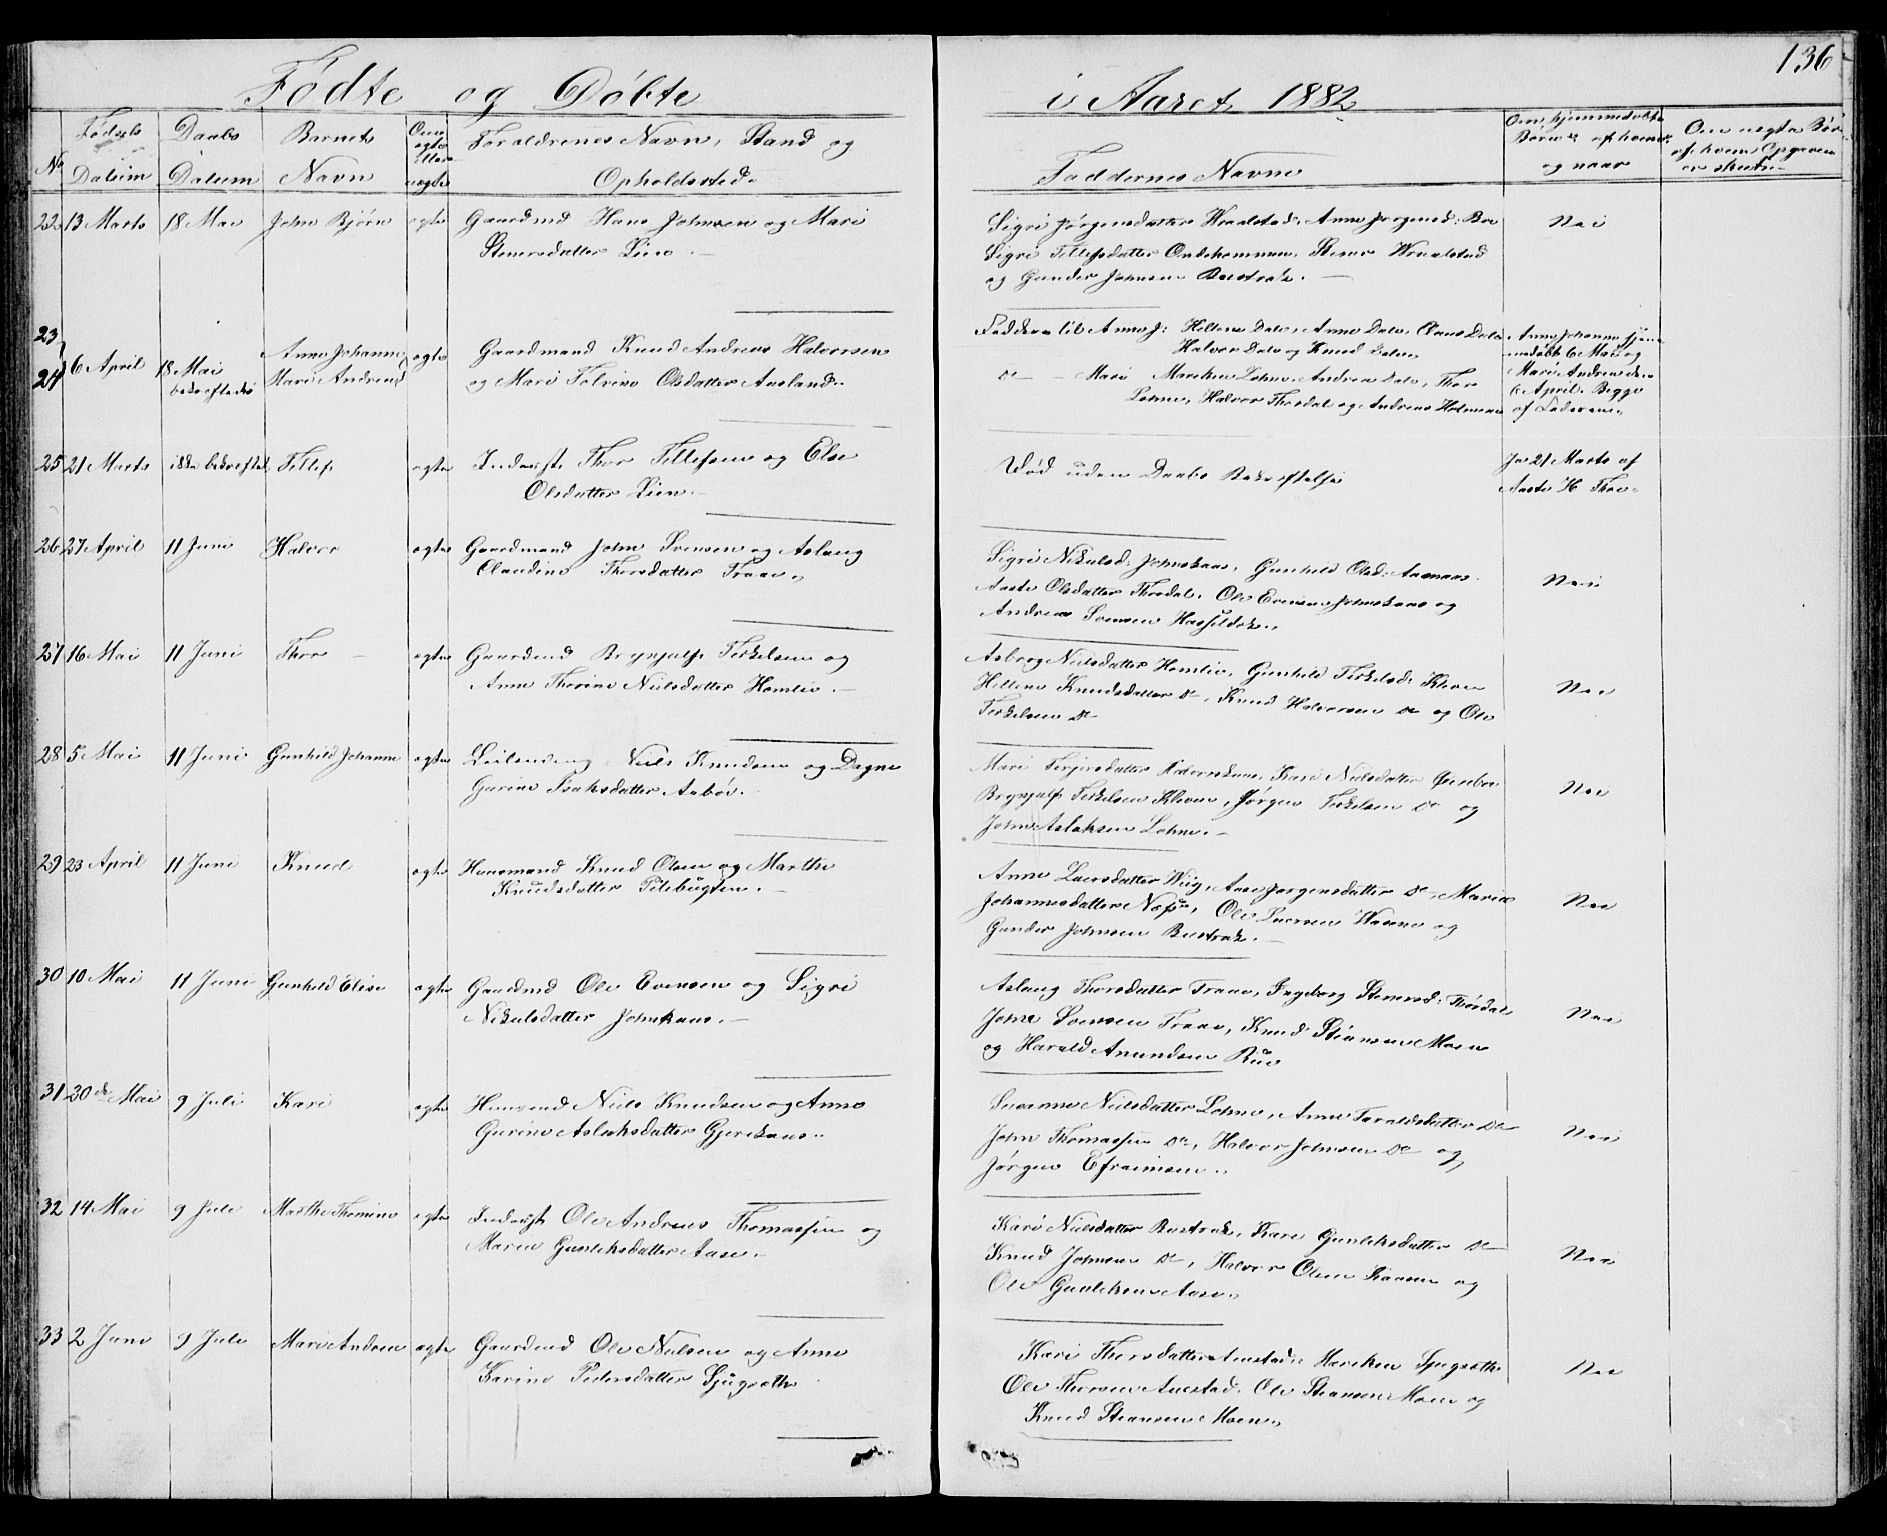 Fødte og Døbte i Aaret 1882
136
No
Fødsels Datum
Daabs Datum
Barnets Navn
Om ægte eller uægte
Forældrenes Navn, Stand og Opholdssted
Faddernes Navne
Om hjemmedøbte Børn af hvem og naar
Om uægte Børn af hvem Opgaven er skeet
22 13 Marts 18 Mai John Bjørn ægte Gaardmd Hans Johnsen og Mari
Stenersdatter Lien
Sigri Jørgensdatter Wraalstad, Anne Jørgensd: Boe
Sigri Tellefsdatter Stener Wraalstad
og Gunder Johnsen Bustrak.
Nei
23 24 6 April 18 Mai bekræftedes Anne Johanne Mari Andrea ægte Gaardmand Knud Andreas Halvorsen
og Mari Olsdatter Ausland
Faddere til Anne J: Hellene Dale, Anne Dale, Claus Dale
Halvor Dale og Knud
Do — Mari Mareken Lohne, Andrea Dale, Thor
Lohne, Halvor Thordal og Andreas
Anne Johanne hjem-
medøbt 6 Mai og
Mari Andrea den
6 April. Begge
af Faderen
25 21 Marts ikke bekræftet Tellef ægte Inderst Thor Tellefsen og Else
Olsdatter Lien
Død uden Daabs Bekræftelse
Ja 21 Marts af
Aaste H
26 27 April 11 Juni Halvor ægte Gaardmand John Svensen og Aslaug
Claudine Thorsdatter Traae
Sigri Nikulsd: Johnskaas, Gunhild Olsd:
Aaste Olsdatter Thordal, Ole Evensen Johnskaas og
Andreas Svensen
Nei
27 16 Mai 11 Juni Thor ægte Gaardmd Brynjulf Terkelsen og
Anne Thorine Nielsdatter Homlie
Asborg Nielsdatter Homlie, Gunhild Terkelsd: Kleven
Hellene Knudsdatter Do, Knud Halvorsen Do og Ole
Terkelsen Do
Nei
28 5 Mai 11 Juni Gunhild Johanne ægte Leilending Niels Knudsen og Dagne
Gurine Isaksdatter Aabøe
Mari Terjersdatter Kari Nielsdatter
Brynjulf Terkelsen Kleven, Jørgen Terkelsen Do og
John Aslaksen Lohne
Nei
29 23 April 11 Juni Knud ægte Huusmand Knud Olsen og Marthe
Knudsdatter Pilebugten
Anne Larsdatter Wiig, Aase Jørgensdatter Do, Marie
Johannesdatter Næss, Ole Larsen og
Gunder Johnsen Bustrak.
Nei
30 10 Mai 11 Juni Gunhild Elise ægte Gaardmd Ole Evensen og Sigri
Nikulsdatter Johnskaas
Aslaug Thorsdatter Traae, Ingeborg Stenersd: Thordal
John Svensen Traae, Knud Steansen Moen
og Harald Amundsen Rue
Nei
31 30de Mai 9 Juli Kari ægte Huusmd Niels Knudsen og Anne
Gurine Aslaksdatter Gjerskaas
Susanne Nielsdatter Lohne, Anne Taraldsdatter Do
John Thomassen Do, Halvor Johnsen Do og
Jørgen Efraimsen
Nei
32 14 Mai 9 Juli Marthe Thomine ægte Inderst Ole Andreas Thomassen og
Maren Gunleksdatter Aase
Kari Nielsdatter Bustrak, Kari Gunleksdatter Do
Knud Johnsen Do, Halvor Olsen og
Ole Gunleksen Aase
Nei
33 2 Juni 9 Juli Mari Andrea ægte Gaardmd Ole Nielsen og Anne
Karine Pedersdatter Sjugsæth
Kari Thorsdatter Auestad, Mareken Sjugsæth
Ole Thorsen Auestad, Ole Steansen Moen og
Knud Steansen Moen
Nei